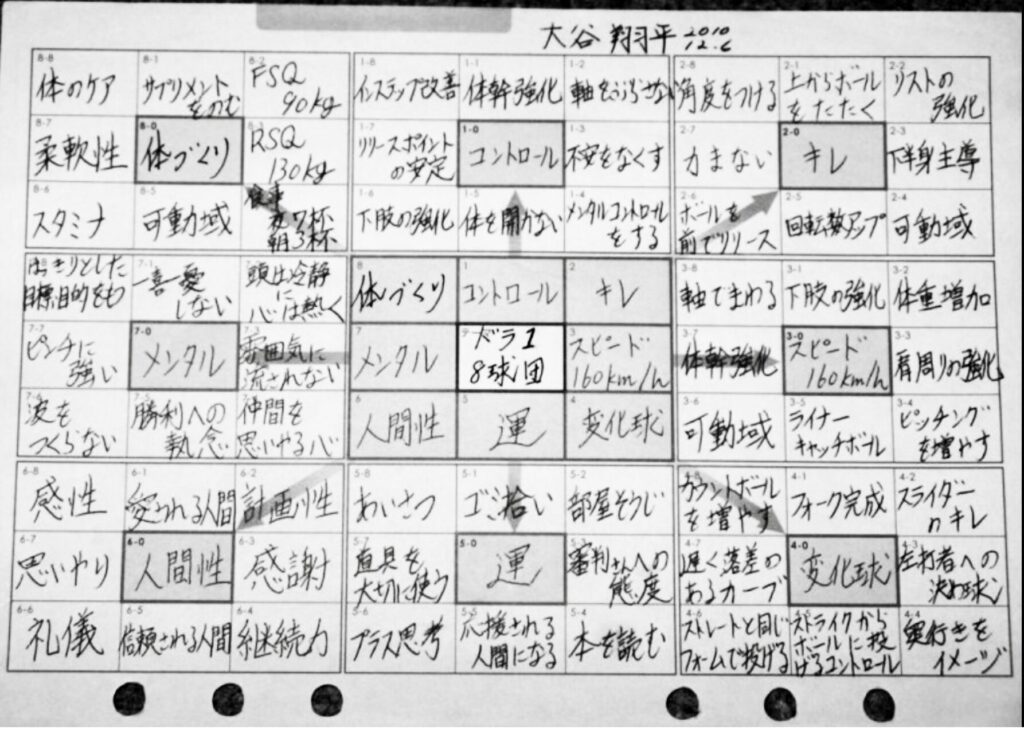 大谷 翔平 2010
12.6
8-8
体のケア
8-1
サプリメント
をのむ
8-2
FSQ
90kg
8-7
柔軟性
8-0
体づくり
RSQ
130kg
8-6
スタミナ
8-5
可動域
食事
夜7杯
朝3杯
1-8
インステップ改善
1-1
体幹強化
1-2
軸をぶらさない
1-7
リリースポイント
の安定
1-0
コントロール
1-3
不安をなくす
1-6
下肢の強化
1-5
体を開かない
1-4
メンタルコントロール
をする
2-8
角度をつける
2-1
上からボール
をたたく
2-2
リストの
強化
2-7
力まない
2-0
キレ
2-3
下半身主導
2-6
ボールを
前でリリース
2-5
回転数アップ
2-4
可動域
はっきりとした
目標目的をも
7-1
一喜一憂
しない
頭は冷静
に
心は熱く
7-7
ピンチに
強い
7-0
メンタル
7-3
雰囲気に
流されない
7-6
波を
つくらない
7-5
勝利への
執念
仲間を
思いやる心
8
体づくり
1
コントロール
2
キレ
7
メンタル
ドラ1
8球団
3
スピード
160km/h
6
人間性
5
運
4
変化球
3-8
軸でまわる
3-1
下肢の強化
3-2
体重増加
3-7
体幹強化
3-0
スピード
160km/h
3-3
肩周りの強化
3-6
可動域
3-5
ライナー
キャッチボール
3-4
ピッチング
を増やす
6-8
感性
6-1
愛される人間
6-2
計画性
6-7
思いやり
6-0
人間性
6-3
感謝
6-6
礼儀
6-5
信頼される人間
6-4
継続力
5-8
あいさつ
5-1
ゴミ拾い
5-2
部屋そうじ
5-7
道具を
大切に使う
5-0
運
5-3
審判さんへの
態度
5-6
プラス思考
5-5
応援される
人間になる
5-4
本を読む
4-8
カウントボール
を増やす
4-1
フォーク完成
4-2
スライダー
のキレ
4-7
遅く落差の
あるカーブ
4-0
変化球
4-3
左打者への
決め球
4-6
ストレートと同じ
フォームで投げる
4-5
ストライクから
ボールに投
げるコントロール
4-4
奥行きを
イメージ